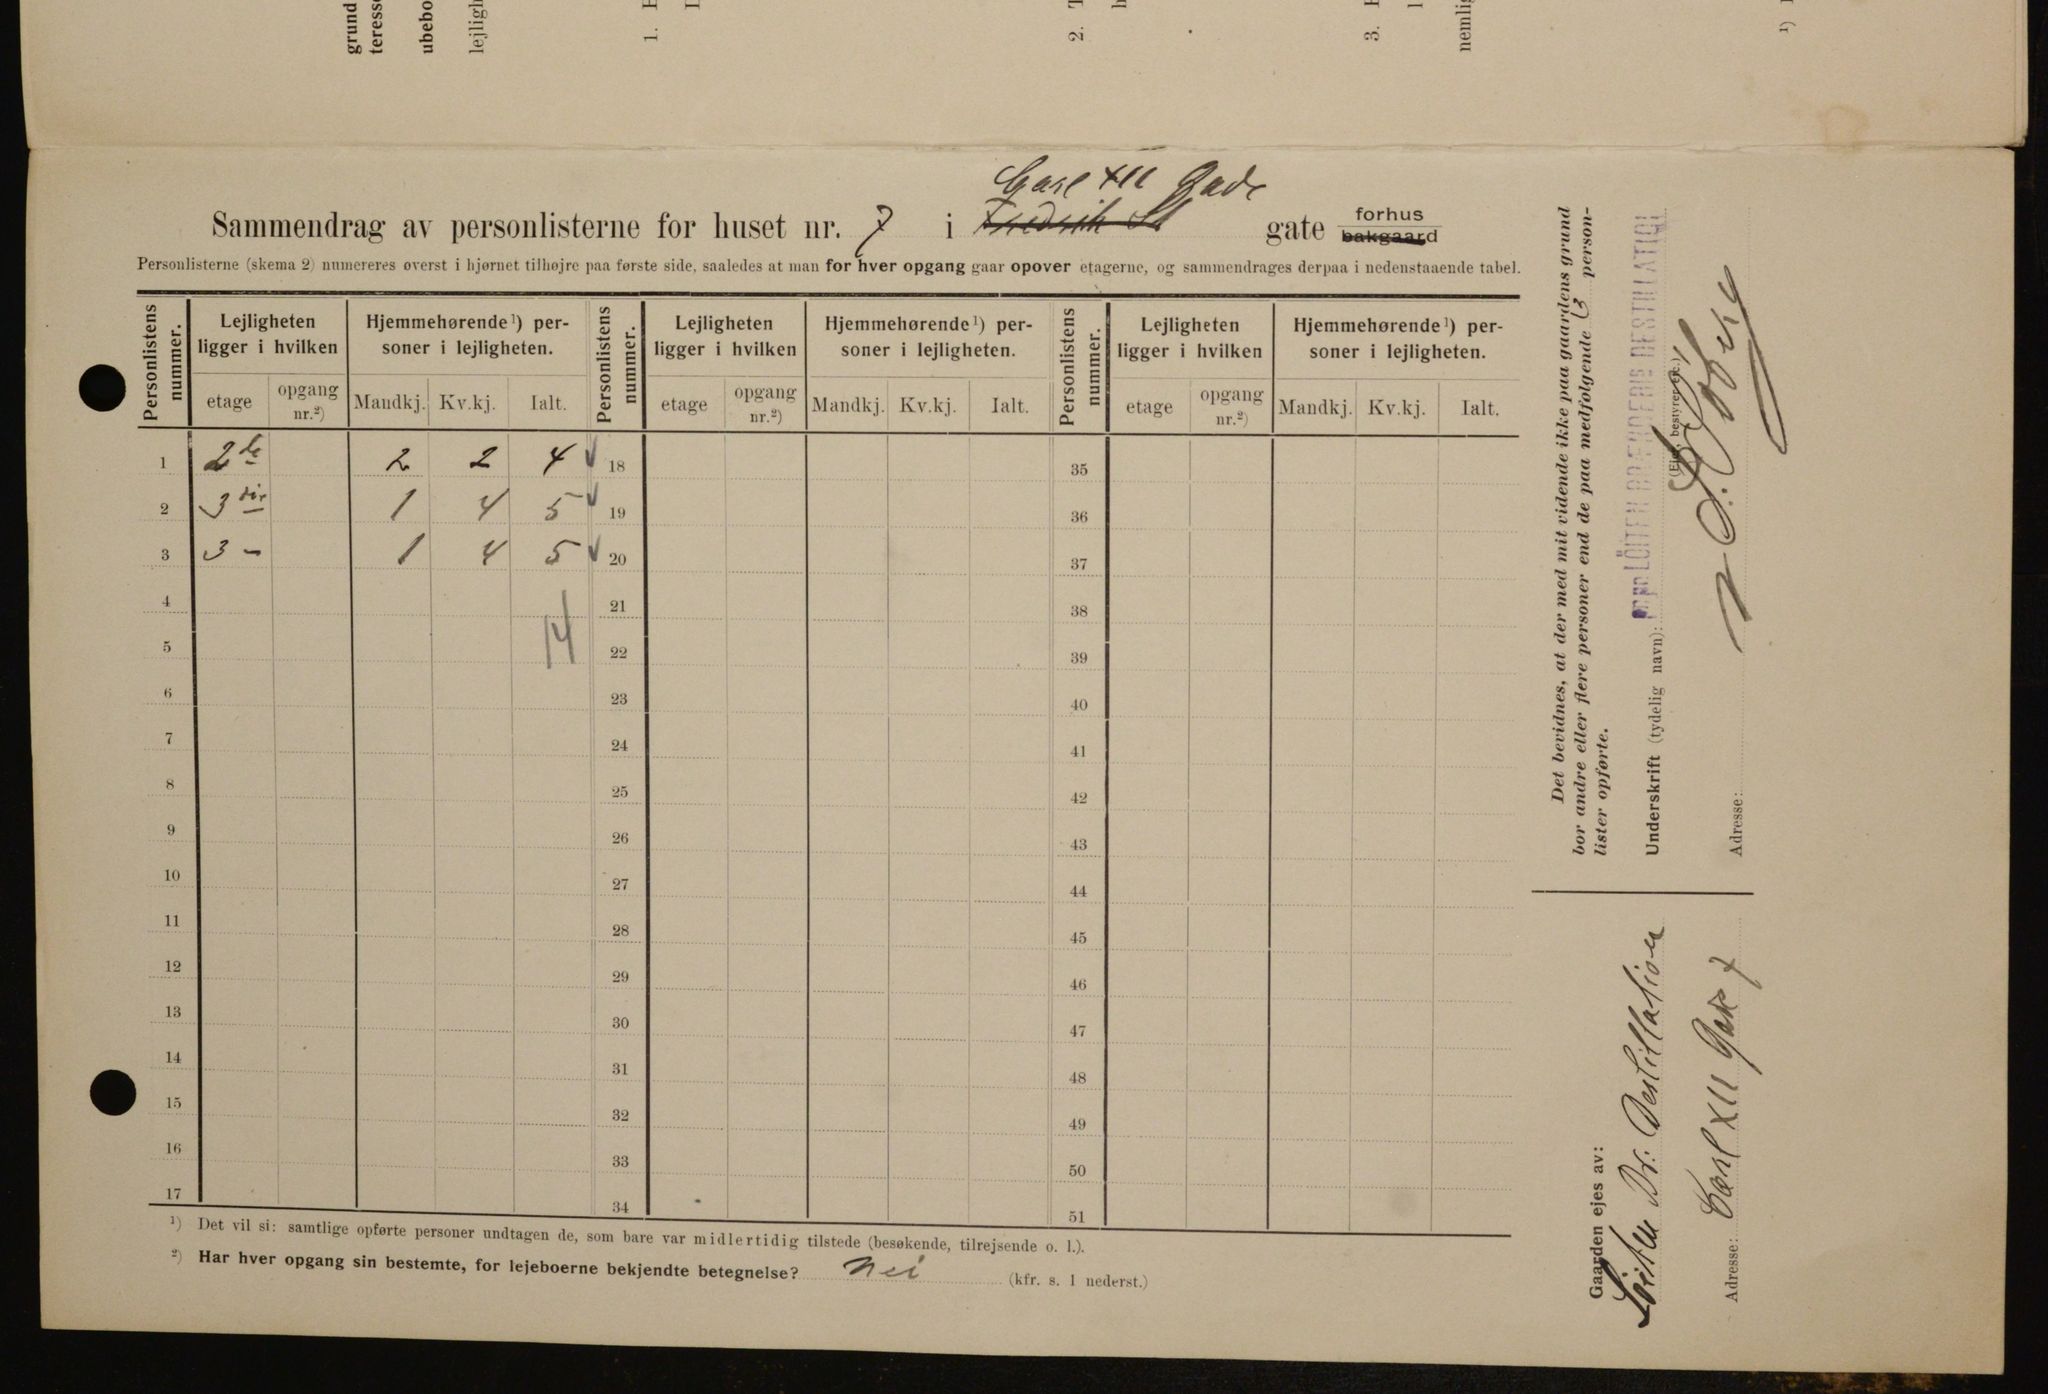 grund
teresse
ubebo
lejligh
1.
2.
3.
nemlig
¹)
Carl XII Gade
Sammendrag av personlisterne for huset nr. 7 i Fredrik St gate forhus bakgaard
Personlisterne (skema 2) numereres øverst i hjørnet tilhøjre paa første side, saaledes at man for hver opgang gaar opover etagerne, og sammendrages derpaa i nedenstaaende tabel.
Personlistens nummer. Lejligheten ligger i hvilken Hjemmehørende¹) personer i lejligheten. Personlistens nummer. Lejligheten ligger i hvilken Hjemmehørende¹) personer i lejligheten. Personlistens nummer. Lejligheten ligger i hvilken Hjemmehørende¹) personer i lejligheten.
etage opgang nr.²) Mandkj. Kv.kj. Ialt. etage opgang nr.²) Mandkj. Kv.kj. Ialt. etage opgang nr.²) Mandkj. Kv.kj. Ialt.
1 2de 2 2 4 ✓ 18 35
2 3die 1 4 5 ✓ 19 36
3 3 – 1 4 5 ✓ 20 37
4 21 38
14
5 22 39
6 23 40
7 24 41
8 25 42
9 26 43
10 27 44
11 28 45
12 29 46
13 30 47
14 31 48
15 32 49
16 33 50
17 34 51
¹) Det vil si: samtlige opførte personer undtagen de, som bare var midlertidig tilstede (besøkende, tilrejsende o. l.).
²) Har hver opgang sin bestemte, for lejeboerne bekjendte betegnelse? Nei (kfr. s. 1 nederst.)
Det bevidnes, at der med mit vidende ikke paa gaardens grund
bor andre eller flere personer end de paa medfølgende 3 person-
lister opførte.
Underskrift (tydelig navn): pr pr LÖITEN BRÆNDERIS DESTILLATION
(Ejer, bestyrer etc.)
Adresse:
Gaarden ejes av:
Löiten Br. Destillation
Adresse: Carl XII Gade 7